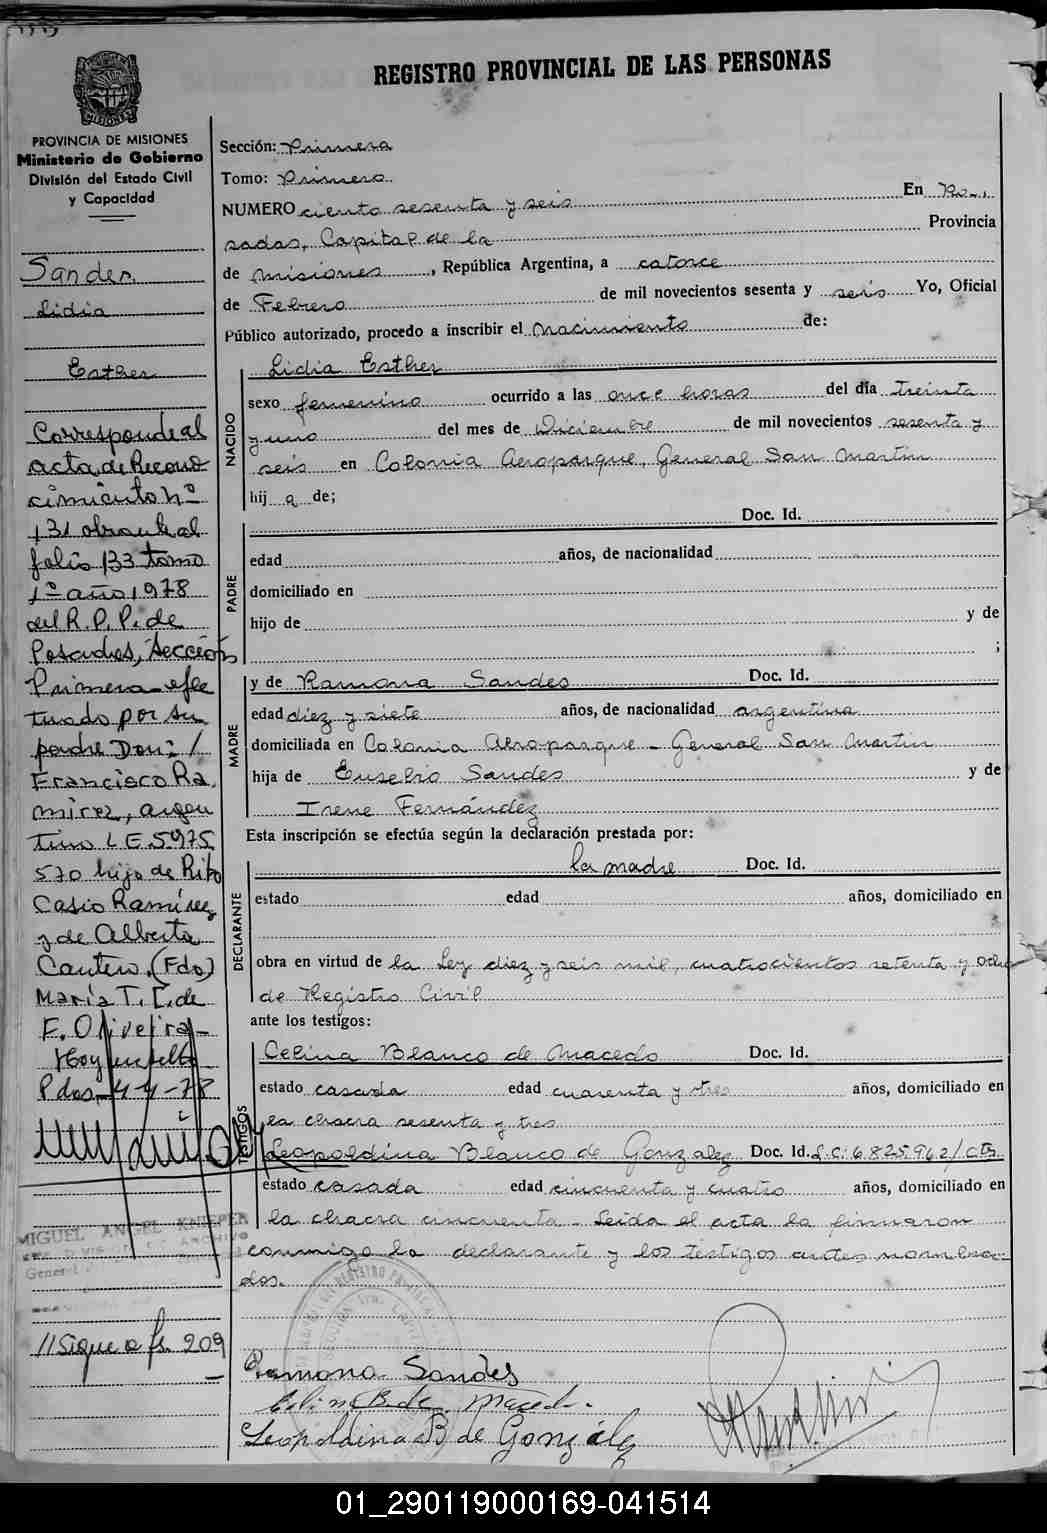 REGISTRO PROVINCIAL DE LAS PERSONAS
PROVINCIA DE MISIONES
Ministerio de Gobierno
División del Estado Civil
y Capacidad
Sandes
Lidia
Esther
Corresponde al
acta de Recono
cimiento nº
131 obrante al
folio 133 tomo
1º año 1978
del R.P.P. de
Posadas, Sección
Primera efec
tuado por su
padre Don: /
Francisco Ra
mirez, argen
tino L E 5975
570 hijo de Rito
Casio Ramírez
y de Alberta
Cantero. (Fdo)
María T. C. de
F. Oliveira-
Pdas. 4-4-78
MIGUEL ANGEL KNIEPER
ARCHIVO
// Sigue a fs. 209
Sección: Primera
Tomo: Primero
NUMERO ciento sesenta y seis En Po-
sadas, Capital de la Provincia
de Misiones, República Argentina, a catorce
de Febrero de mil novecientos sesenta y seis Yo, Oficial
Público autorizado, procedo a inscribir el nacimiento de:
NACIDO
Lidia Esther
sexo femenino ocurrido a las once horas del día treinta
y uno del mes de Diciembre de mil novecientos sesenta y
seis en Colonia Aeroparque, General San Martín
hij a de;
PADRE
Doc. Id.
edad años, de nacionalidad
domiciliado en
hijo de y de
;
MADRE
y de Ramona Sandes Doc. Id.
edad diez y siete años, de nacionalidad argentina
domiciliada en Colonia Aeroparque - General San Martín
hija de Eusebio Sandes y de
Irene Fernández
Esta inscripción se efectúa según la declaración prestada por:
DECLARANTE
la madre Doc. Id.
estado edad años, domiciliado en
obra en virtud de la Ley diez y seis mil, cuatrocientos setenta y ocho
de Registro Civil
ante los testigos:
TESTIGOS
Celina Blanco de Macedo Doc. Id.
estado casada edad cuarenta y tres años, domiciliado en
la chacra sesenta y tres
Leopoldina Blanco de Gonzalez Doc. Id. L.C. 6825962/Cts
estado casada edad cincuenta y cuatro años, domiciliado en
la chacra cincuenta - Leída el acta la firmaron
conmigo la declarante y los testigos antes nombra-
dos.
Ramona Sandes
Celina B. de Macedo.
Leopoldina B de González
01_290119000169-041514